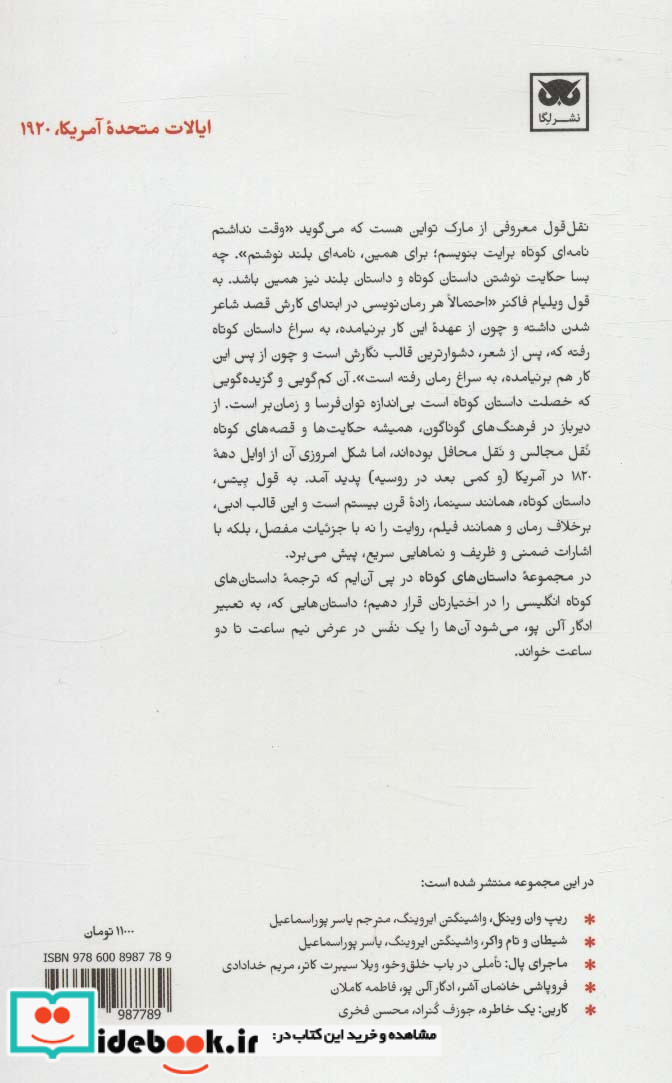 نشر لگا
ایالات متحدهٔ آمریکا، ۱۹۲۰
نقل‌قول معروفی از مارک تواین هست که می‌گوید «وقت نداشتم
نامه‌ای کوتاه برایت بنویسم؛ برای همین، نامه‌ای بلند نوشتم». چه
بسا حکایت نوشتن داستان کوتاه و داستان بلند نیز همین باشد. به
قول ویلیام فاکنر «احتمالاً هر رمان‌نویسی در ابتدای کارش قصد شاعر
شدن داشته و چون از عهدهٔ این کار برنیامده، به سراغ داستان کوتاه
رفته که، پس از شعر، دشوارترین قالب نگارش است و چون از پس این
کار هم برنیامده، به سراغ رمان رفته است». آن کم‌گویی و گزیده‌گویی
که خصلت داستان کوتاه است بی‌اندازه توان‌فرسا و زمان‌بر است. از
دیرباز در فرهنگ‌های گوناگون، همیشه حکایت‌ها و قصه‌های کوتاه
نُقل مجالس و نَقل محافل بوده‌اند، اما شکل امروزی آن از اوایل دههٔ
۱۸۲۰ در آمریکا (و کمی بعد در روسیه) پدید آمد. به قول پیتس،
داستان کوتاه، همانند سینما، زادهٔ قرن بیستم است و این قالب ادبی،
برخلاف رمان و همانند فیلم، روایت را نه با جزئیات مفصل، بلکه با
اشارات ضمنی و ظریف و نماهایی سریع، پیش می‌برد.
در مجموعهٔ داستان‌های کوتاه در پی آن‌ایم که ترجمهٔ داستان‌های
کوتاه انگلیسی را در اختیارتان قرار دهیم؛ داستان‌هایی که، به تعبیر
ادگار آلن پو، می‌شود آن‌ها را یک نفَس در عرض نیم ساعت تا دو
ساعت خواند.
در این مجموعه منتشر شده است:
* ریپ وان وینکل، واشینگتن ایروینگ، مترجم یاسر پوراسماعیل
* شیطان و تام واکر، واشینگتن ایروینگ، یاسر پوراسماعیل
* ماجرای پال: تأملی در باب خلق‌وخو، ویلا سیبرت کاتر، مریم خدادادی
* فروپاشی خانمان آشر، ادگار آلن پو، فاطمه کاملان
* کارین: یک خاطره، جوزف کُنراد، محسن فخری
۱۱۰۰۰ تومان
ISBN 978 600 8987 78 9
987789
مشاهده و خرید این کتاب در:
idebook.ir